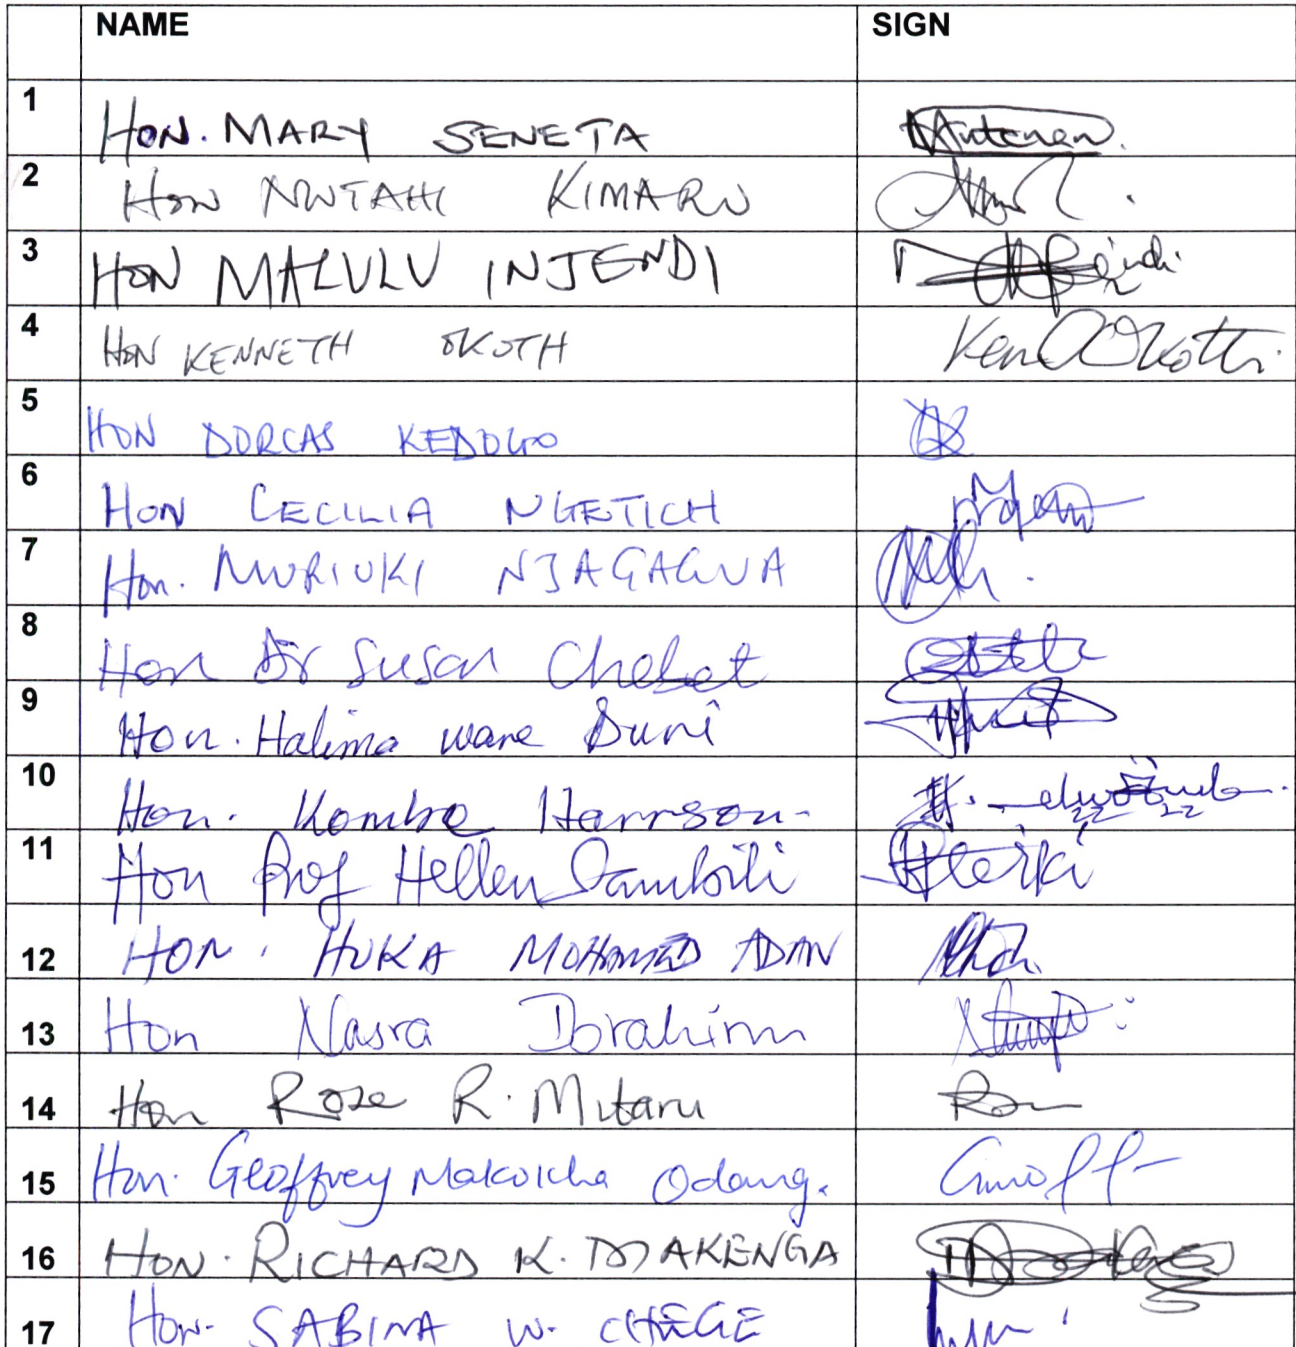 NAME SIGN
1 HON. MARY SENETA
2 HON MWTAHI KIMARU
3 HON MALULU INJENDI
4 HON KENNETH OKOTH Ken Okoth
5 HON DORCAS KEDOGO
6 HON CECILIA NGETICH
7 Hon. MURIUKI NJAGAGUA
8 Hon Dr Susan Chebet
9 Hon. Halima ware Duri
10 Hon. Kombe Harrison.
11 Hon Prof Hellen Sambili
12 HON. HUKA MOHAMED ADAN
13 Hon Nasra Ibrahim
14 Hon Rose R. Mitaru
15 Hon. Geoffrey Makokha Odang.
16 HON. RICHARD K. TOJAKENGA
17 HON. SABINA W. CHEGE